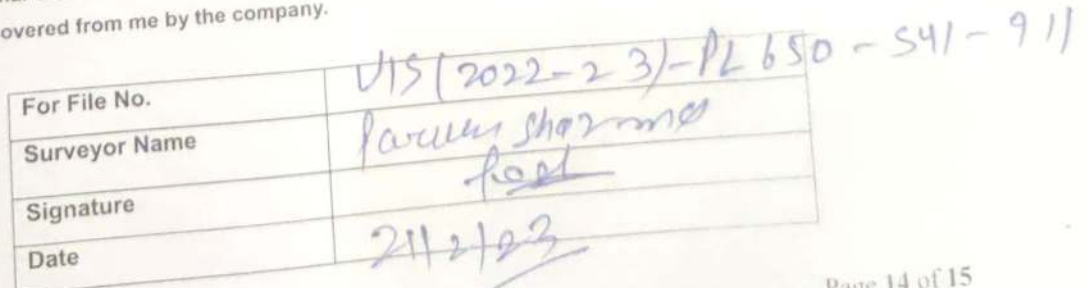 overed from me by the company.
For File No. VIS(2022-23)-PL650-541-911
Surveyor Name Parveen Sharma
Signature
Date 21/2/23
Page 14 of 15